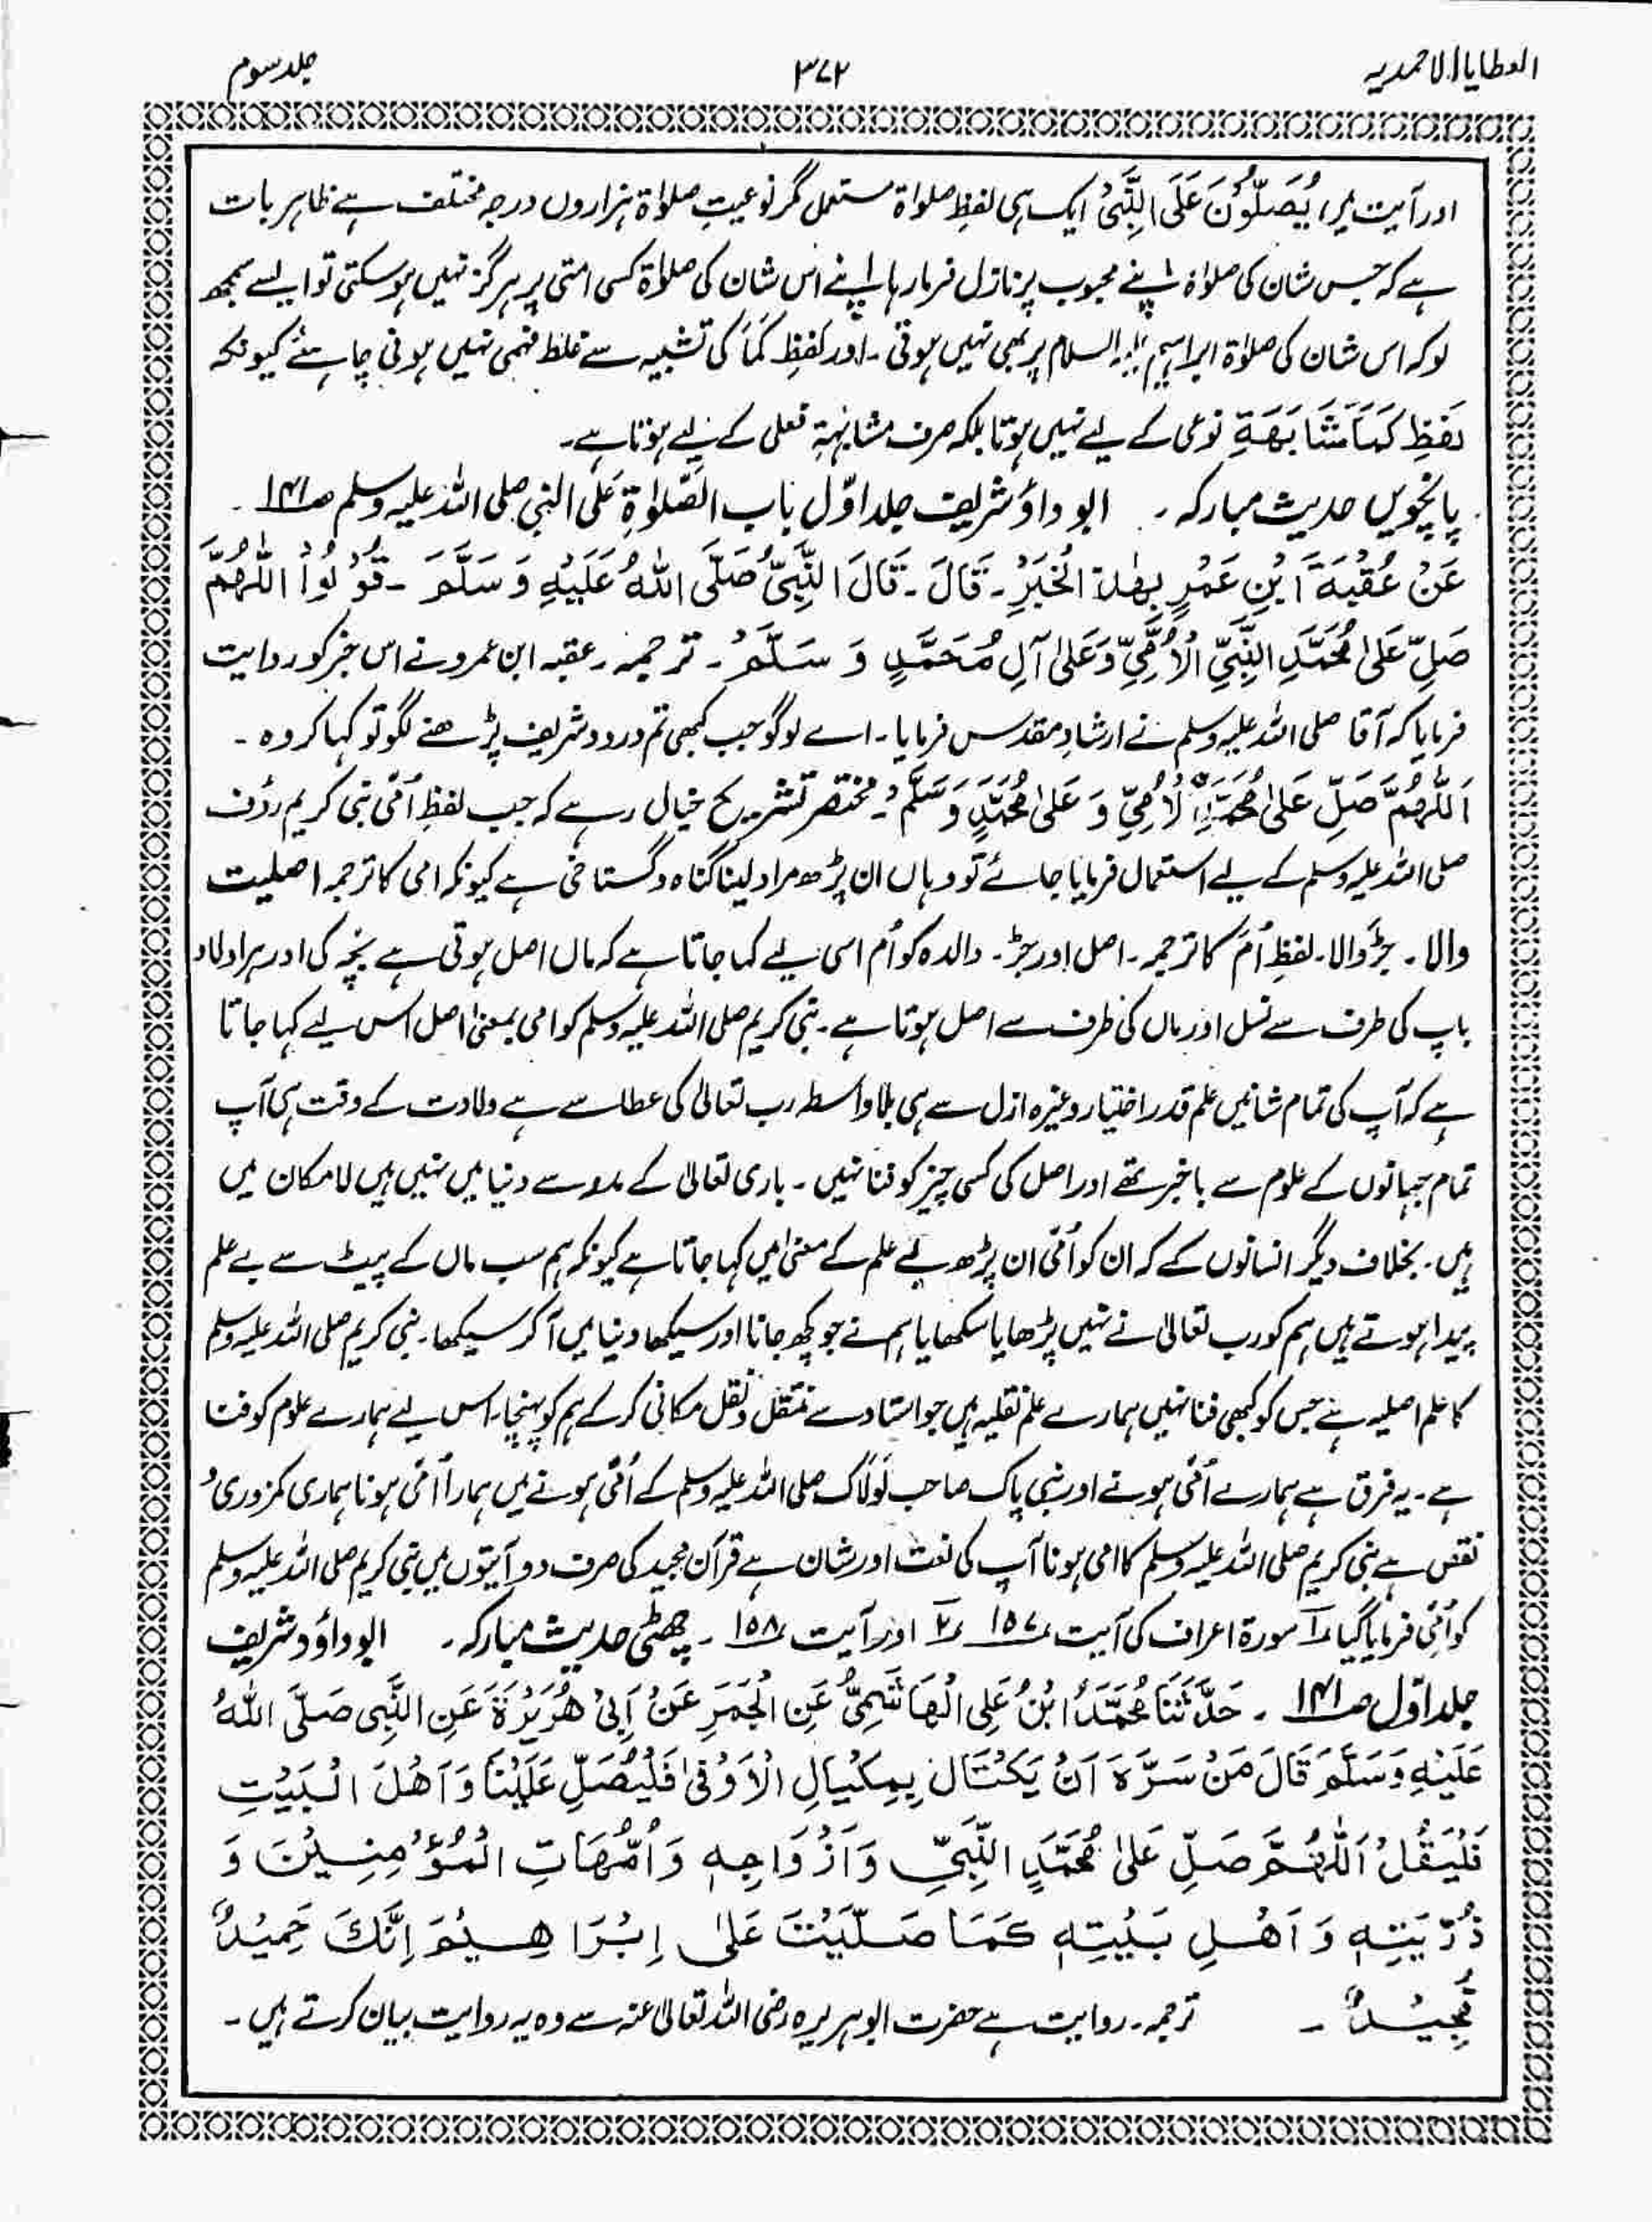 العطایا الاحمدیہ
۳۷۲
جلد سوم
اور آیت میں یُصَلُّوْنَ عَلَی النَّبِیِّ ایک ہی لفظِ صلوٰۃ مستعمل مگر نوعیتِ صلوٰۃ ہزاروں درجہ مختلف ہے ظاہر بات
ہے کہ جس شان کی صلوٰۃ اپنے محبوب پر نازل فرما رہا ہے اس شان کی صلوٰۃ کسی امتی پر ہرگز نہیں ہو سکتی تو ایسے سمجھ
لو کہ اس شان کی صلوٰۃ ابراہیم علیہ السلام پر بھی نہیں ہوتی ۔ اور لفظِ کَمَا کی تشبیہ سے غلط فہمی نہیں ہونی چاہئے کیونکہ
لفظِ کَمَا مُشَابَہَۃِ نوعی کے لیے نہیں ہوتا بلکہ صرف مشابہۃ فعلی کے لیے ہوتا ہے۔
پانچویں حدیث مبارکہ ۔ ابو داؤد شریف جلد اوّل باب الصَّلوٰۃِ عَلَی النبی صلی اللہ علیہ وسلم صـ ۱۴۱ ۔
عَنْ عُقْبَۃَ ابْنِ عَمْرٍ بِھٰذَ الْخَبَرِ ۔ قَالَ ۔ قَالَ النَّبِیُّ صَلَّی اللہُ عَلَیْہِ وَسَلَّمَ ۔ قُوْلُوْا اَللّٰھُمَّ
صَلِّ عَلٰی مُحَمَّدِ النَّبِیِّ الْاُمِّیِّ وَعَلٰی آلِ مُحَمَّدٍ وَ سَلِّمْ ۔ ترجمہ ۔ عقبہ ابن عمرو نے اس خبر کو روایت
فرمایا کہ آقا صلی اللہ علیہ وسلم نے ارشادِ مقدس فرمایا ۔ اے لوگو جب کبھی تم درود شریف پڑھنے لگو تو کہا کرو وہ ۔
اَللّٰھُمَّ صَلِّ عَلٰی مُحَمَّدِنِ الْاُمِّیِّ وَ عَلٰی مُحَمَّدٍ وَسَلِّمْ ۔ مختصر تشریح خیال رہے کہ جب لفظِ اُمّی نبی کریم رؤف
صلی اللہ علیہ وسلم کے لیے استعمال فرمایا جائے تو وہاں ان پڑھ مراد لینا گناہ و گستاخی ہے کیونکہ امی کا ترجمہ اصلیت
والا ۔ جڑ والا ۔ لفظِ اُمّ کا ترجمہ ۔ اصل اور جڑ ۔ والدہ کو اُم اسی لیے کہا جاتا ہے کہ ماں اصل ہوتی ہے بچہ کی اور ہر اولاد
باپ کی طرف سے نسل اور ماں کی طرف سے اصل ہوتا ہے ۔ نبی کریم صلی اللہ علیہ وسلم کو امی بمعنیٰ اصل اس لیے کہا جاتا
ہے کہ آپ کی تمام شانیں علم قدر اختیار وغیرہ ازل سے ہی بلاواسطہ رب تعالیٰ کی عطا سے ہے ولادت کے وقت ہی آپ
تمام جہانوں کے علوم سے باخبر تھے اور اصل کی کسی چیز کو فنا نہیں ۔ باری تعالیٰ کے سے دنیا میں نہیں ہیں لا مکان میں
ہیں ۔ بخلاف دیگر انسانوں کے کہ ان کو اُمّی ان پڑھ بے علم کے معنیٰ میں کہا جاتا ہے کیونکہ ہم سب ماں کے پیٹ سے بے علم
پیدا ہوتے ہیں ہم کو رب تعالیٰ نے نہیں پڑھایا سکھایا ہم نے جو کچھ جانا اور سیکھا دنیا میں آ کر سیکھا ۔ نبی کریم صلی اللہ علیہ وسلم
کا علم اصلیہ ہے جس کو کبھی فنا نہیں ہمارے علم نقلیہ ہیں جو استاد سے منتقل و نقل مکانی کر کے ہم کو پہنچا ۔ اس لیے ہمارے علوم کو فنا
ہے ۔ یہ فرق ہے ہمارے اُمّی ہونے اور نبی پاک صاحبِ لَوْلَاک صلی اللہ علیہ وسلم کے اُمّی ہونے میں ہمارا اُمّی ہونا ہماری کمزوری و
نقص ہے نبی کریم صلی اللہ علیہ وسلم کا امی ہونا آپ کی نعت اور شان ہے قرآن مجید کی صرف دو آیتوں میں نبی کریم صلی اللہ علیہ وسلم
کو اُمّی فرمایا گیا ۱ سورۃ اعراف کی آیت ۱۵۷ ۲ اور آیت ۱۵۸ ۔ چھٹی حدیث مبارکہ ۔ ابو داؤد شریف
جلد اوّل صـ ۱۴۱ ۔ حَدَّثَنَا مُحَمَّدُ ابْنُ عَلِی الْھَاشِمِیُّ عَنِ الْجُمَرِ عَنْ اَبِیْ ھُرَیْرَۃَ عَنِ النَّبِی صَلَّی اللہُ
عَلَیْہِ وَسَلَّمَ قَالَ مَنْ سَرَّہٗ اَنْ یَکْتَالَ بِمِکْیَالِ الْاَوْفٰی فَلْیُصَلِّ عَلَیْنَا وَاَھْلَ الْبَیْتِ
فَلْیَقُلْ اَللّٰھُمَّ صَلِّ عَلٰی مُحَمَّدِ النَّبِیِّ وَاَزْوَاجِہٖ وَاُمَّھَاتِ الْمُؤْمِنِیْنَ وَ
ذُرِّیَتِہٖ وَ اَھْلِ بَیْتِہٖ کَمَا صَلَّیْتَ عَلٰی اِبْرَاھِیْمَ اِنَّکَ حَمِیْدٌ
مَّجِیْدٌ ۔ ترجمہ ۔ روایت ہے حضرت ابوہریرہ رضی اللہ تعالیٰ عنہ سے وہ یہ روایت بیان کرتے ہیں ۔